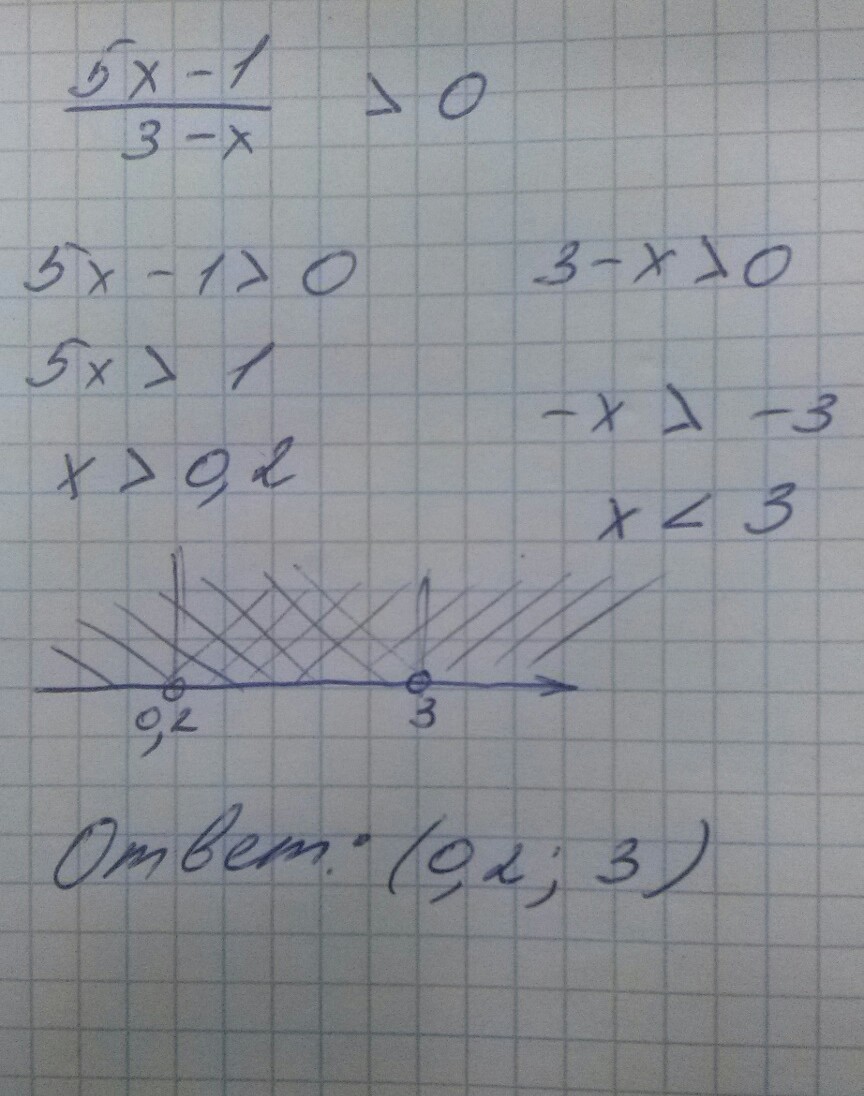 5x - 1
3 - x
> 0
5x - 1 > 0
5x > 1
x > 0,2
3 - x > 0
-x > -3
x < 3
0,2
3
Ответ: (0,2; 3)